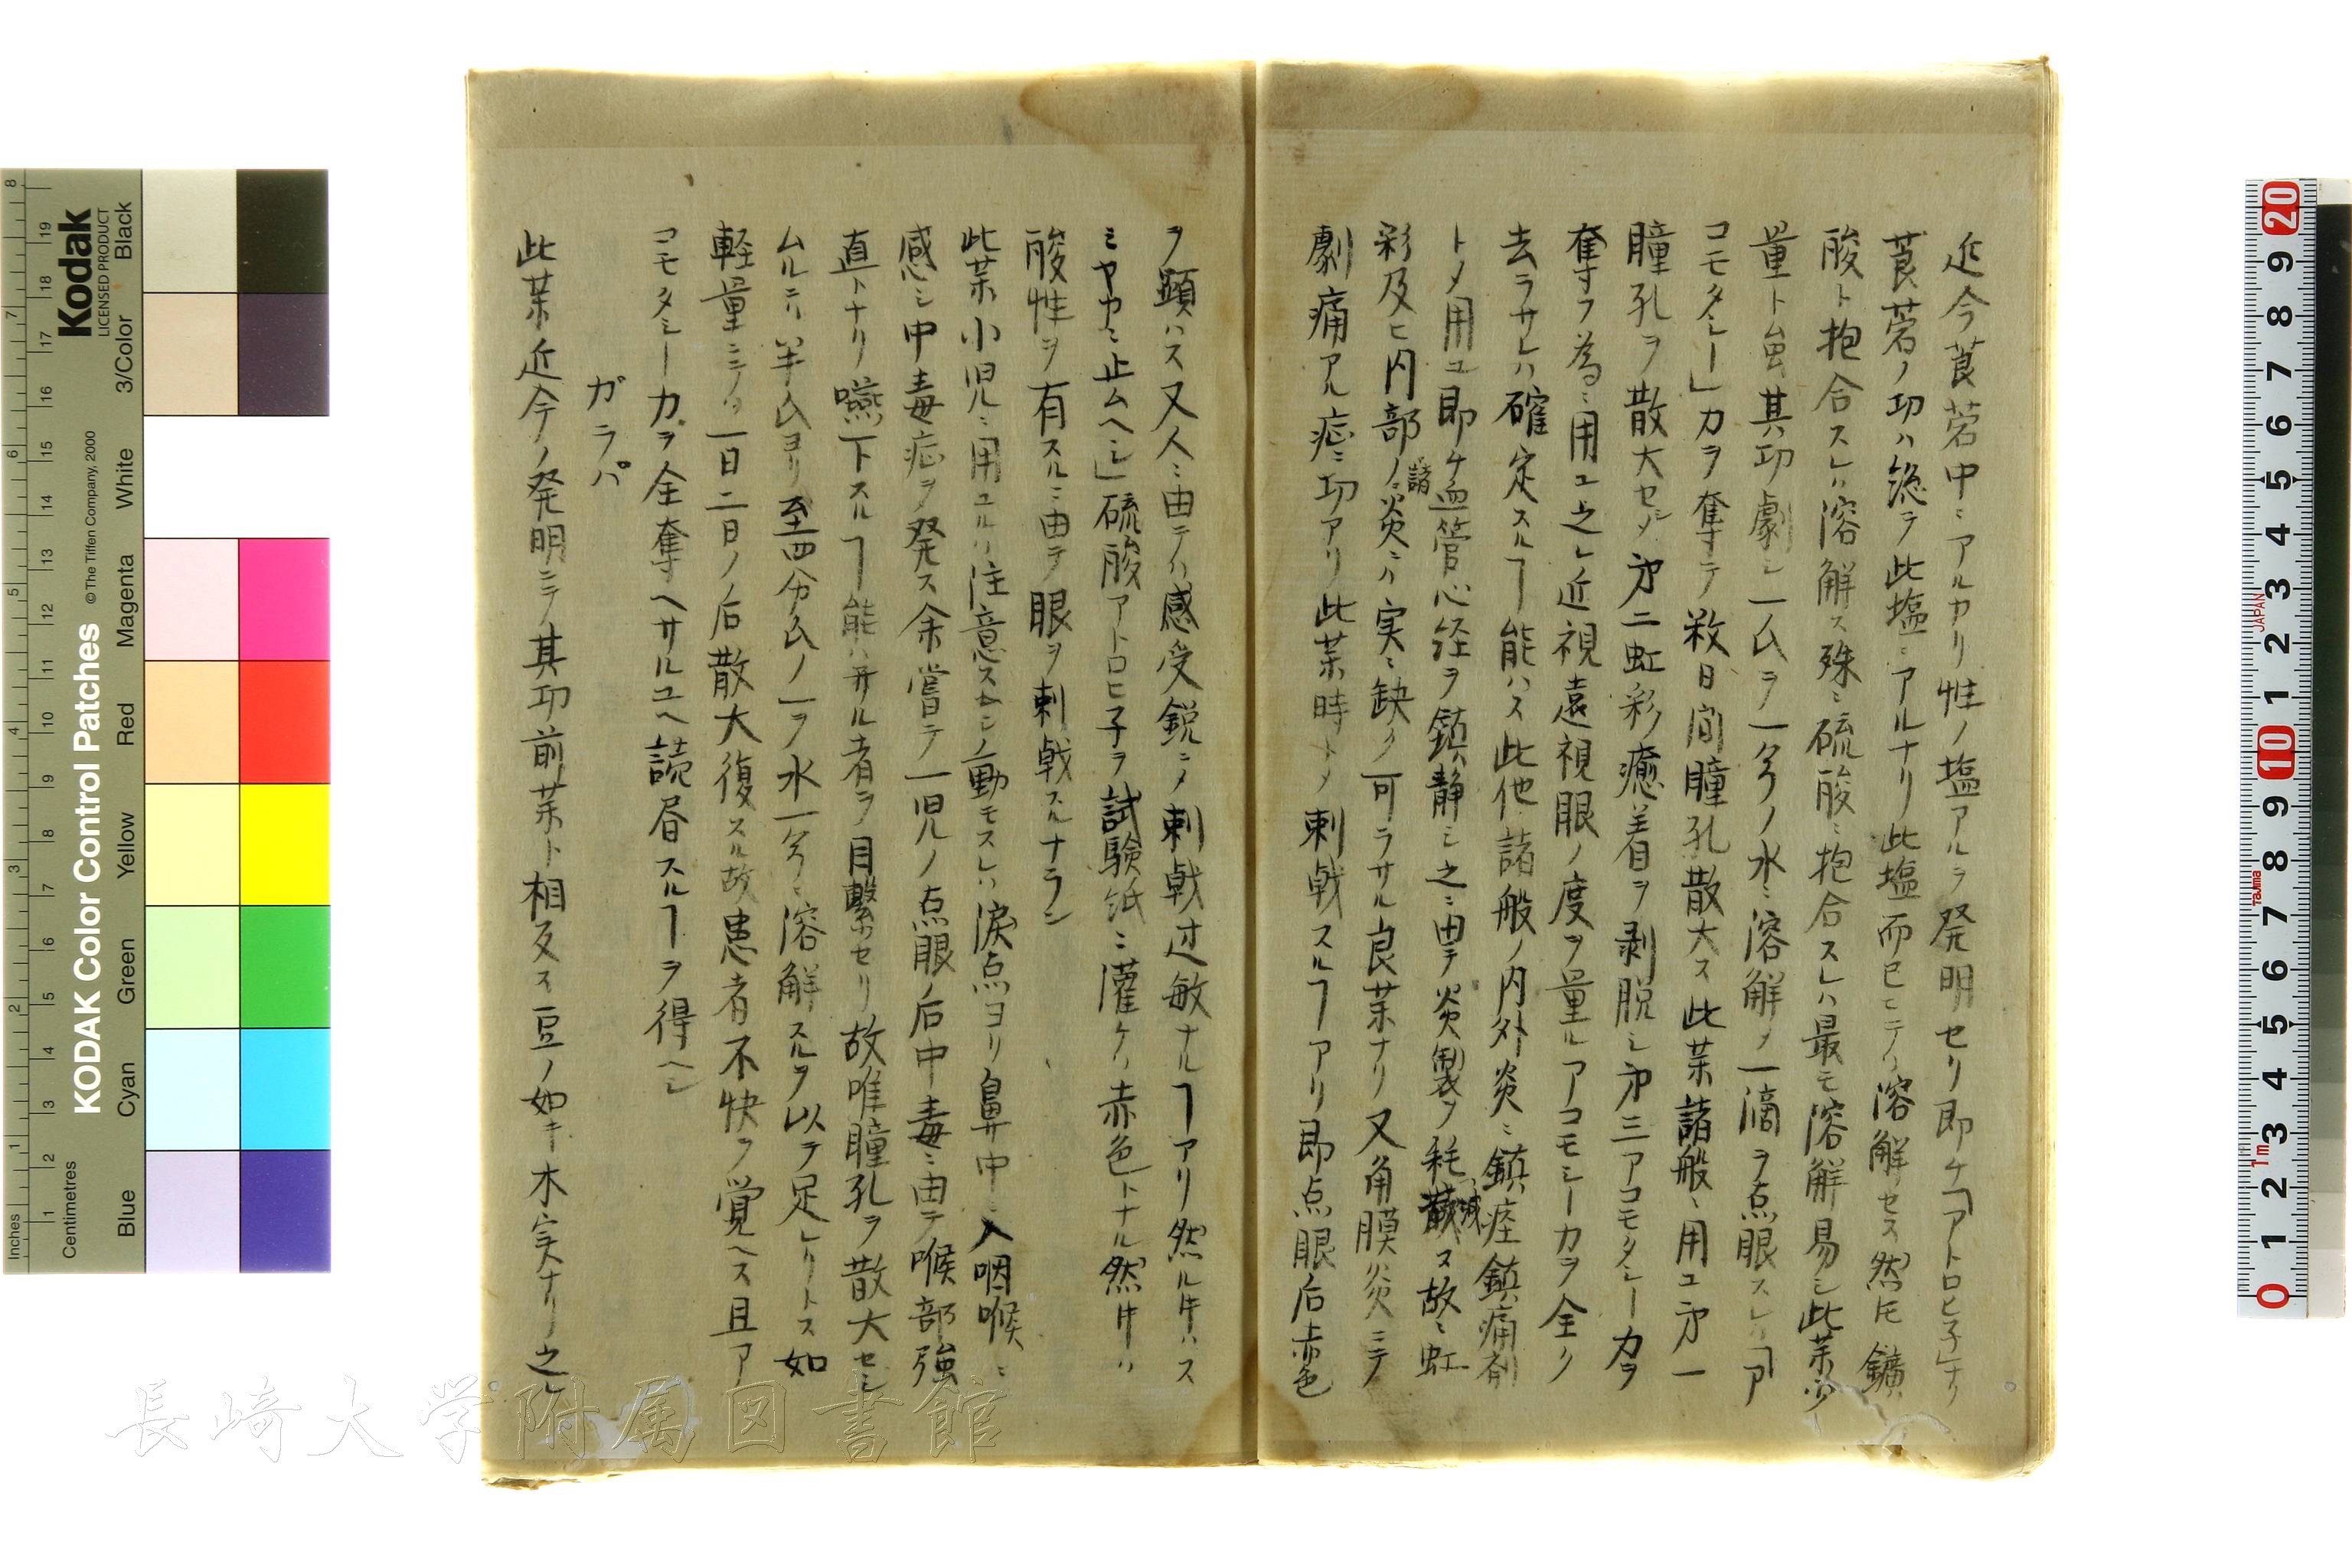 近今莨菪中ニアルカリ性ノ塩アルヲ発明セリ即チ「アトロヒ子」ナリ
莨菪ノ功ハ総テ此塩ニアルナリ此塩而已ニテハ溶解セス然𪜈鑛
酸ト抱合スレハ溶解ス殊ニ硫酸ニ抱合スレハ最モ溶解易シ此薬少
量ト虽其功劇シ一氏ヲ一〆ノ水ニ溶解メ一滴ヲ点眼スレハ「ア
コモタシー」力ヲ奪テ数日間瞳孔散大ス此薬諸般ニ用ユ第一
瞳孔ヲ散大セシメ第二虹彩癒着ヲ剥脱シ第三アコモタシー力ヲ
奪フ為ニ用ユ之レ近視遠視眼ノ度ヲ量ルアコモシー力ヲ全ク
去ラサレハ確定スルヿ能ハス此他諸般ノ内外炎ニ鎮痙鎮痛剤
トメ用ユ即チ血管心経ヲ鎮静シ之ニ由テ炎製ヲ耗減ス故ニ虹
彩及ヒ内部ノ諸炎ニハ実ニ缺ク可ラサル良薬ナリ又角膜炎ニテ
劇痛アル症ニ功アリ此薬時トメ刺戟スルヿアリ即点眼后赤色
ヲ顕ハス又人ニ由テハ感受鋭ニメ刺戟过敏ナルヿアリ然ル𪜈ハス
ミヤカニ止ムヘシ」硫酸アトロヒ子ヲ試験紙ニ灌ケハ赤色トナル然𪜈ハ
酸性ヲ有スルニ由テ眼ヲ刺戟スルナラン
此薬小児ニ用ユルハ注意スヘシ動モスレハ涙点ヨリ鼻中ニ入咽喉ニ
感シ中毒症ヲ発ス余嘗テ一児ノ点眼ノ后中毒ニ由テ喉部強
直トナリ嚥下スルヿ能ハサル者ヲ目繋セリ故唯瞳孔ヲ散大セシ
ムルニハ半氏ヨリ至四分氏ノ一ヲ水一〆ニ溶解スルヲ以テ足レリトス如
軽量ニメハ一日二日ノ后散大復スル故患者不快ヲ覚ヘス且アノ
コモタシー力ヲ全奪ヘサルユヘ読昏スルヿヲ得ヘシ
ガラバ
此薬近今ノ発明ニメ其功前薬ト相反ス豆ノ如キ木実ナリ之レ
Kodak
LICENSED PRODUCT
KODAK Color Control Patches
© The Tiffen Company, 2000
Black
3/Color
White
Magenta
Red
Yellow
Green
Cyan
Blue
Inches
Centimetres
JAPAN
Tajima
1m
長崎大学附属図書館